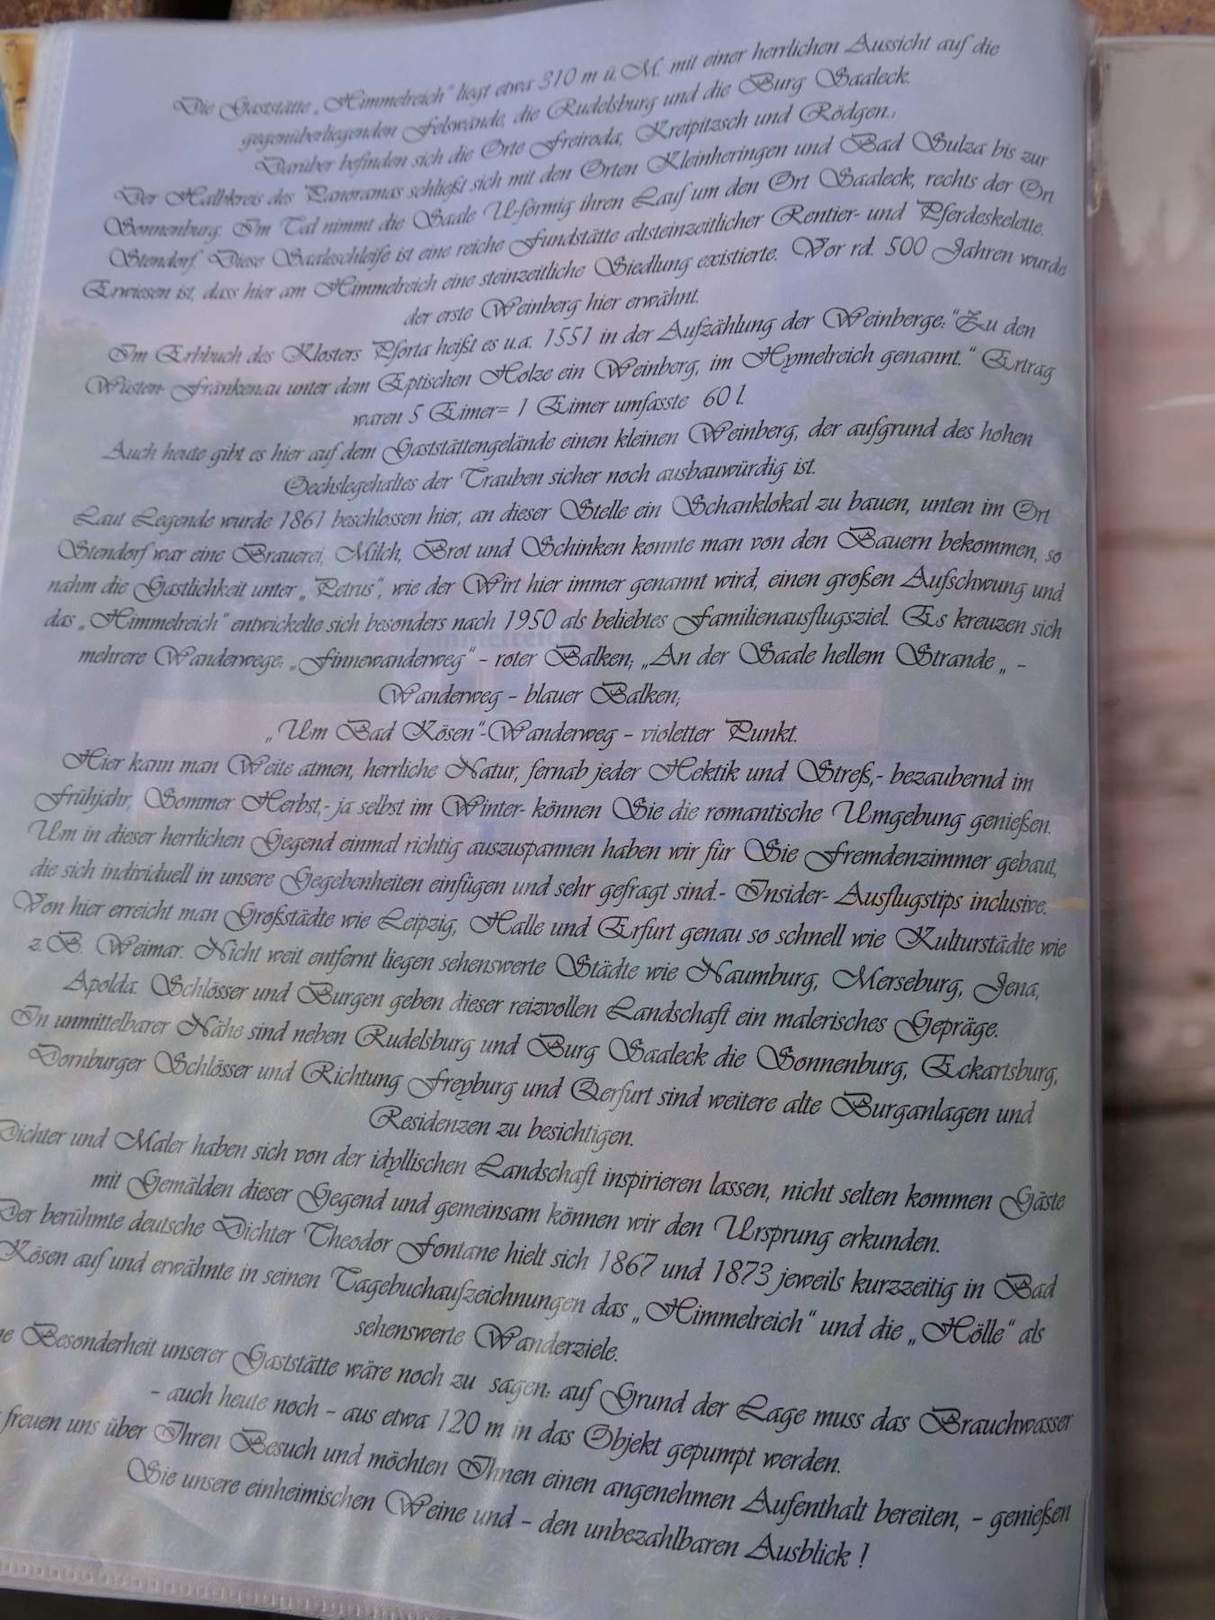 Die Gaststätte „Himmelreich" liegt etwa 310 m ü. M. mit einer herrlichen Aussicht auf die
gegenüberliegenden Felswände, die Rudelsburg und die Burg Saaleck.
Darüber befinden sich die Orte Freiroda, Kreipitzsch und Rödgen.,
Der Halbkreis des Panoramas schließt sich mit den Orten Kleinheringen und Bad Sulza bis zur
Sonnenburg. Im Tal nimmt die Saale U-förmig ihren Lauf um den Ort Saaleck, rechts der Ort
Stendorf. Diese Saaleschleife ist eine reiche Fundstätte altsteinzeitlicher Rentier- und Pferdeskelette.
Erwiesen ist, dass hier am Himmelreich eine steinzeitliche Siedlung existierte. Vor rd. 500 Jahren wurde
der erste Weinberg hier erwähnt.
Im Erbbuch des Klosters Pforta heißt es u.a. 1551 in der Aufzählung der Weinberge: "Zu den
Wüsten- Fränkenau unter dem Eptischen Holze ein Weinberg, im Hymelreich genannt." Ertrag
waren 5 Eimer= 1 Eimer umfasste 60 l.
Auch heute gibt es hier auf dem Gaststättengelände einen kleinen Weinberg, der aufgrund des hohen
Oechslegehaltes der Trauben sicher noch ausbauwürdig ist.
Laut Legende wurde 1861 beschlossen hier, an dieser Stelle ein Schanklokal zu bauen, unten im Ort
Stendorf war eine Brauerei, Milch, Brot und Schinken konnte man von den Bauern bekommen, so
nahm die Gastlichkeit unter „Petrus", wie der Wirt hier immer genannt wird, einen großen Aufschwung und
das „Himmelreich" entwickelte sich besonders nach 1950 als beliebtes Familienausflugsziel. Es kreuzen sich
mehrere Wanderwege: „Finnewanderweg" - roter Balken; „An der Saale hellem Strande „ -
Wanderweg - blauer Balken;
„Um Bad Kösen"-Wanderweg - violetter Punkt.
Hier kann man Weite atmen, herrliche Natur, fernab jeder Hektik und Streß,- bezaubernd im
Frühjahr, Sommer Herbst,- ja selbst im Winter- können Sie die romantische Umgebung genießen.
Um in dieser herrlichen Gegend einmal richtig auszuspannen haben wir für Sie Fremdenzimmer gebaut,
die sich individuell in unsere Gegebenheiten einfügen und sehr gefragt sind.- Insider- Ausflugstips inclusive.
Von hier erreicht man Großstädte wie Leipzig, Halle und Erfurt genau so schnell wie Kulturstädte wie
z.B. Weimar. Nicht weit entfernt liegen sehenswerte Städte wie Naumburg, Merseburg, Jena,
Apolda. Schlösser und Burgen geben dieser reizvollen Landschaft ein malerisches Gepräge.
In unmittelbarer Nähe sind neben Rudelsburg und Burg Saaleck die Sonnenburg, Eckartsburg,
Dornburger Schlösser und Richtung Freyburg und Qerfurt sind weitere alte Burganlagen und
Residenzen zu besichtigen.
Dichter und Maler haben sich von der idyllischen Landschaft inspirieren lassen, nicht selten kommen Gäste
mit Gemälden dieser Gegend und gemeinsam können wir den Ursprung erkunden.
Der berühmte deutsche Dichter Theodor Fontane hielt sich 1867 und 1873 jeweils kurzzeitig in Bad
Kösen auf und erwähnte in seinen Tagebuchaufzeichnungen das „Himmelreich" und die „Hölle" als
sehenswerte Wanderziele.
ne Besonderheit unserer Gaststätte wäre noch zu sagen: auf Grund der Lage muss das Brauchwasser
- auch heute noch - aus etwa 120 m in das Objekt gepumpt werden.
freuen uns über Ihren Besuch und möchten Ihnen einen angenehmen Aufenthalt bereiten, - genießen
Sie unsere einheimischen Weine und - den unbezahlbaren Ausblick !